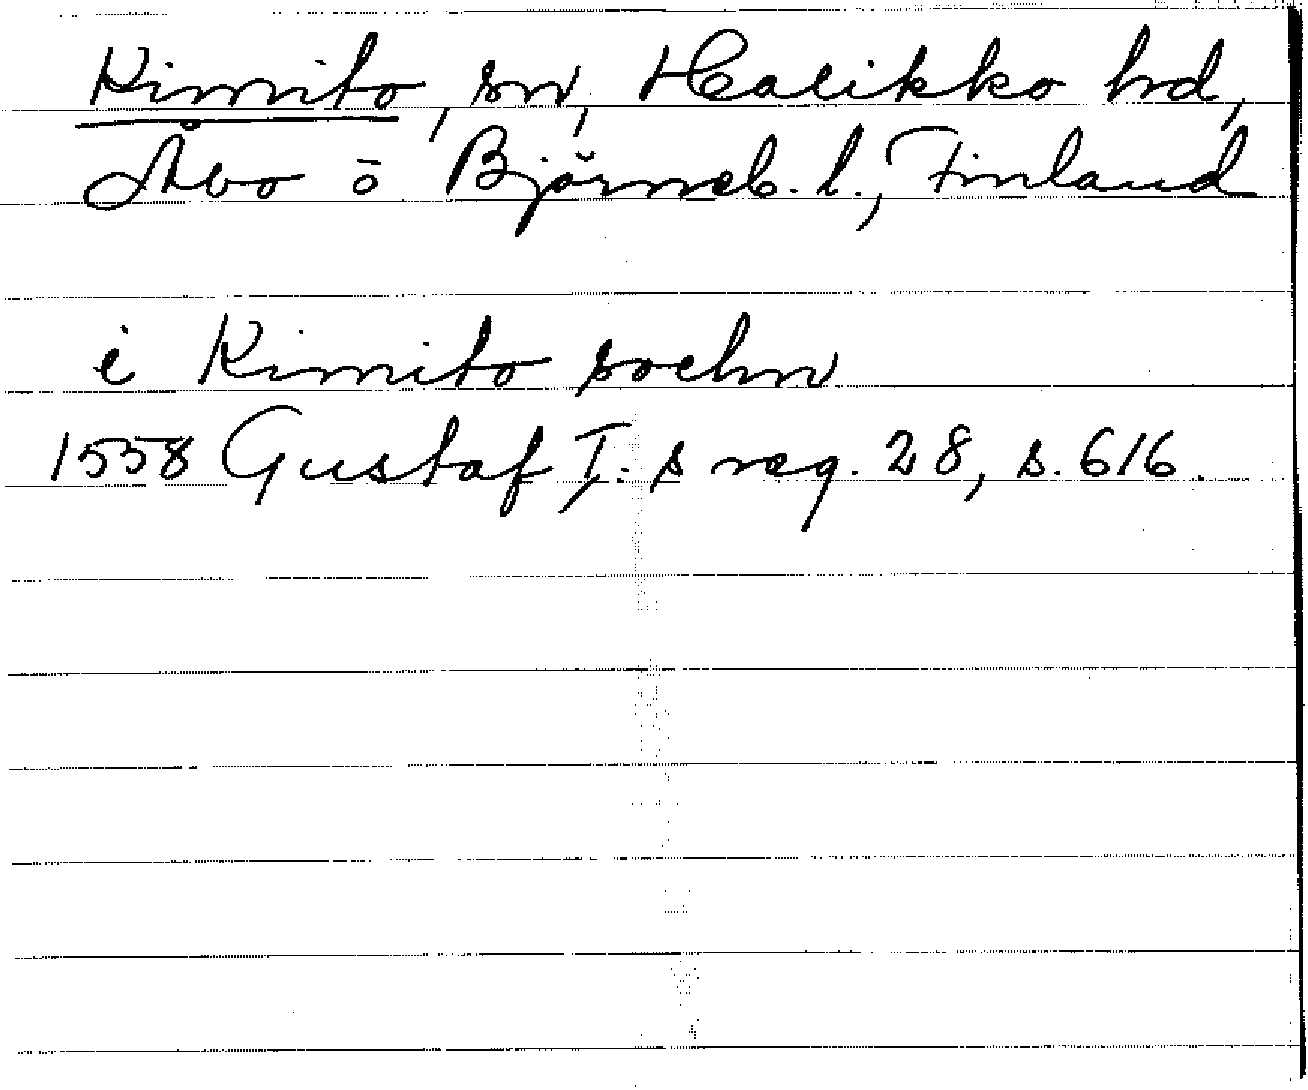 Kimito, sn, Halikko hd,
Åbo ō Björneb. l., Finland
i Kimito sochn
1558 Gustaf I:s reg. 28, s. 616.